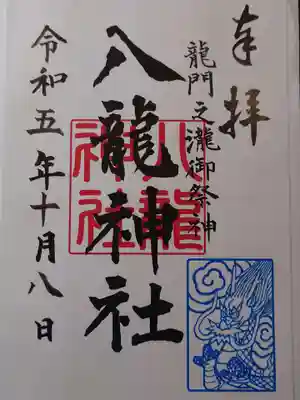 奉拝
龍門之瀧御祭神
八龍神社
八龍神社
令和五年十月八日